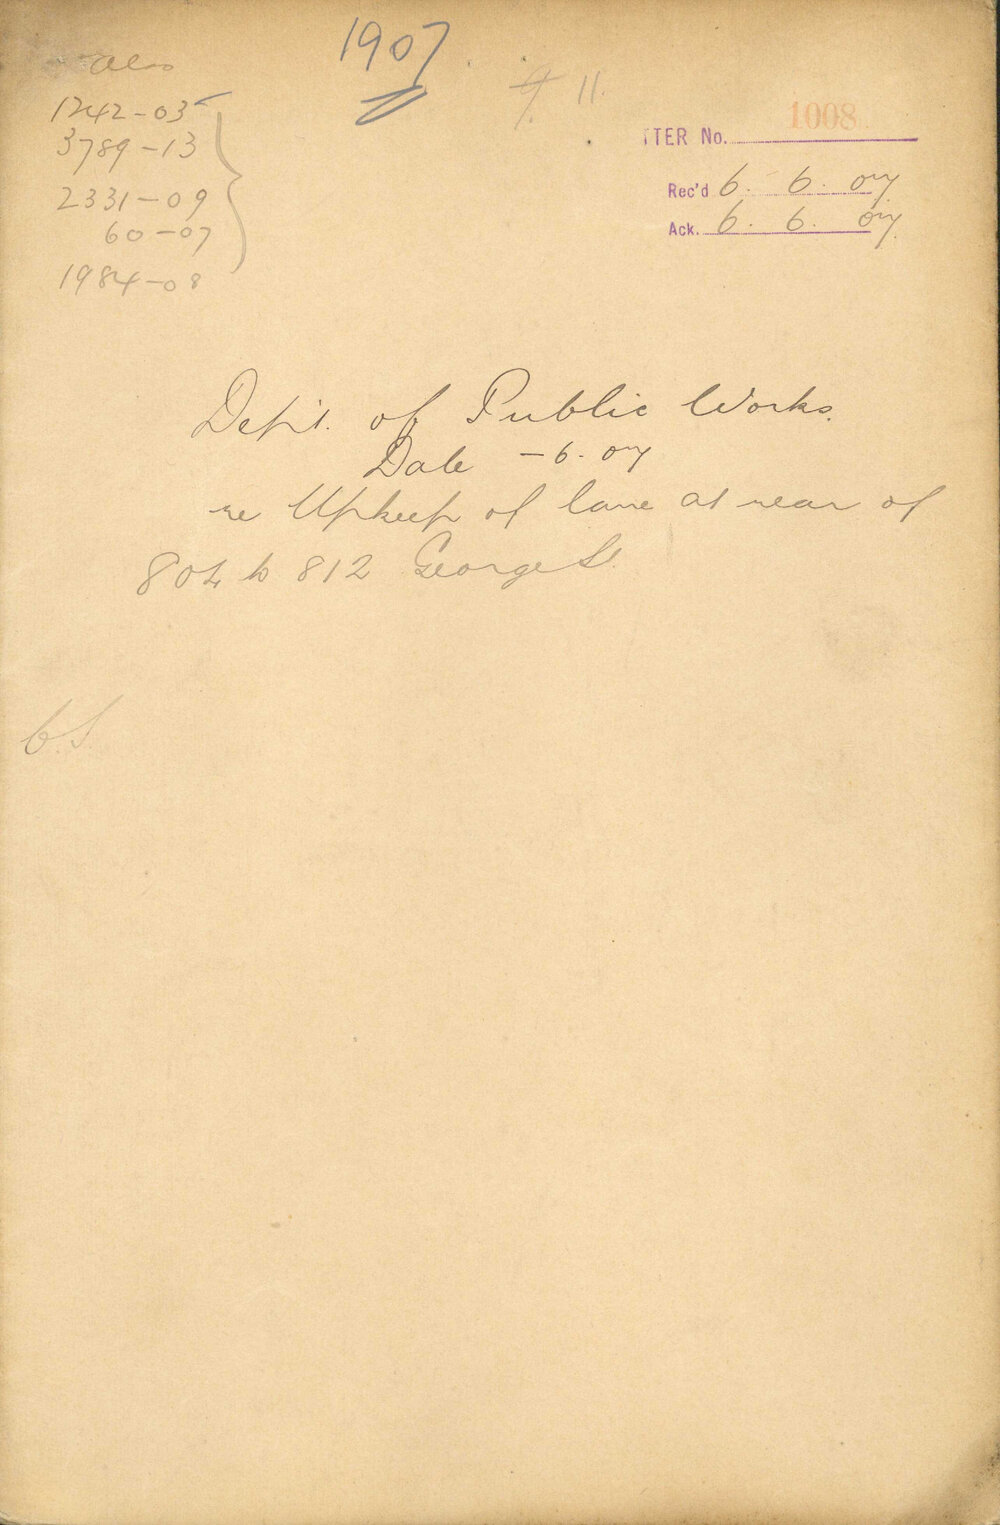 1907
Also
1242-05
3789-13
2331-09
60-07
1984-08
11.
TTER No. 1008
Rec'd 6. 6. 07
Ack. 6. 6. 07.
Dept. of Public Works.
Date - 6. 07
re Upkeep of lane at rear of
804 to 812 George St.
C.S.